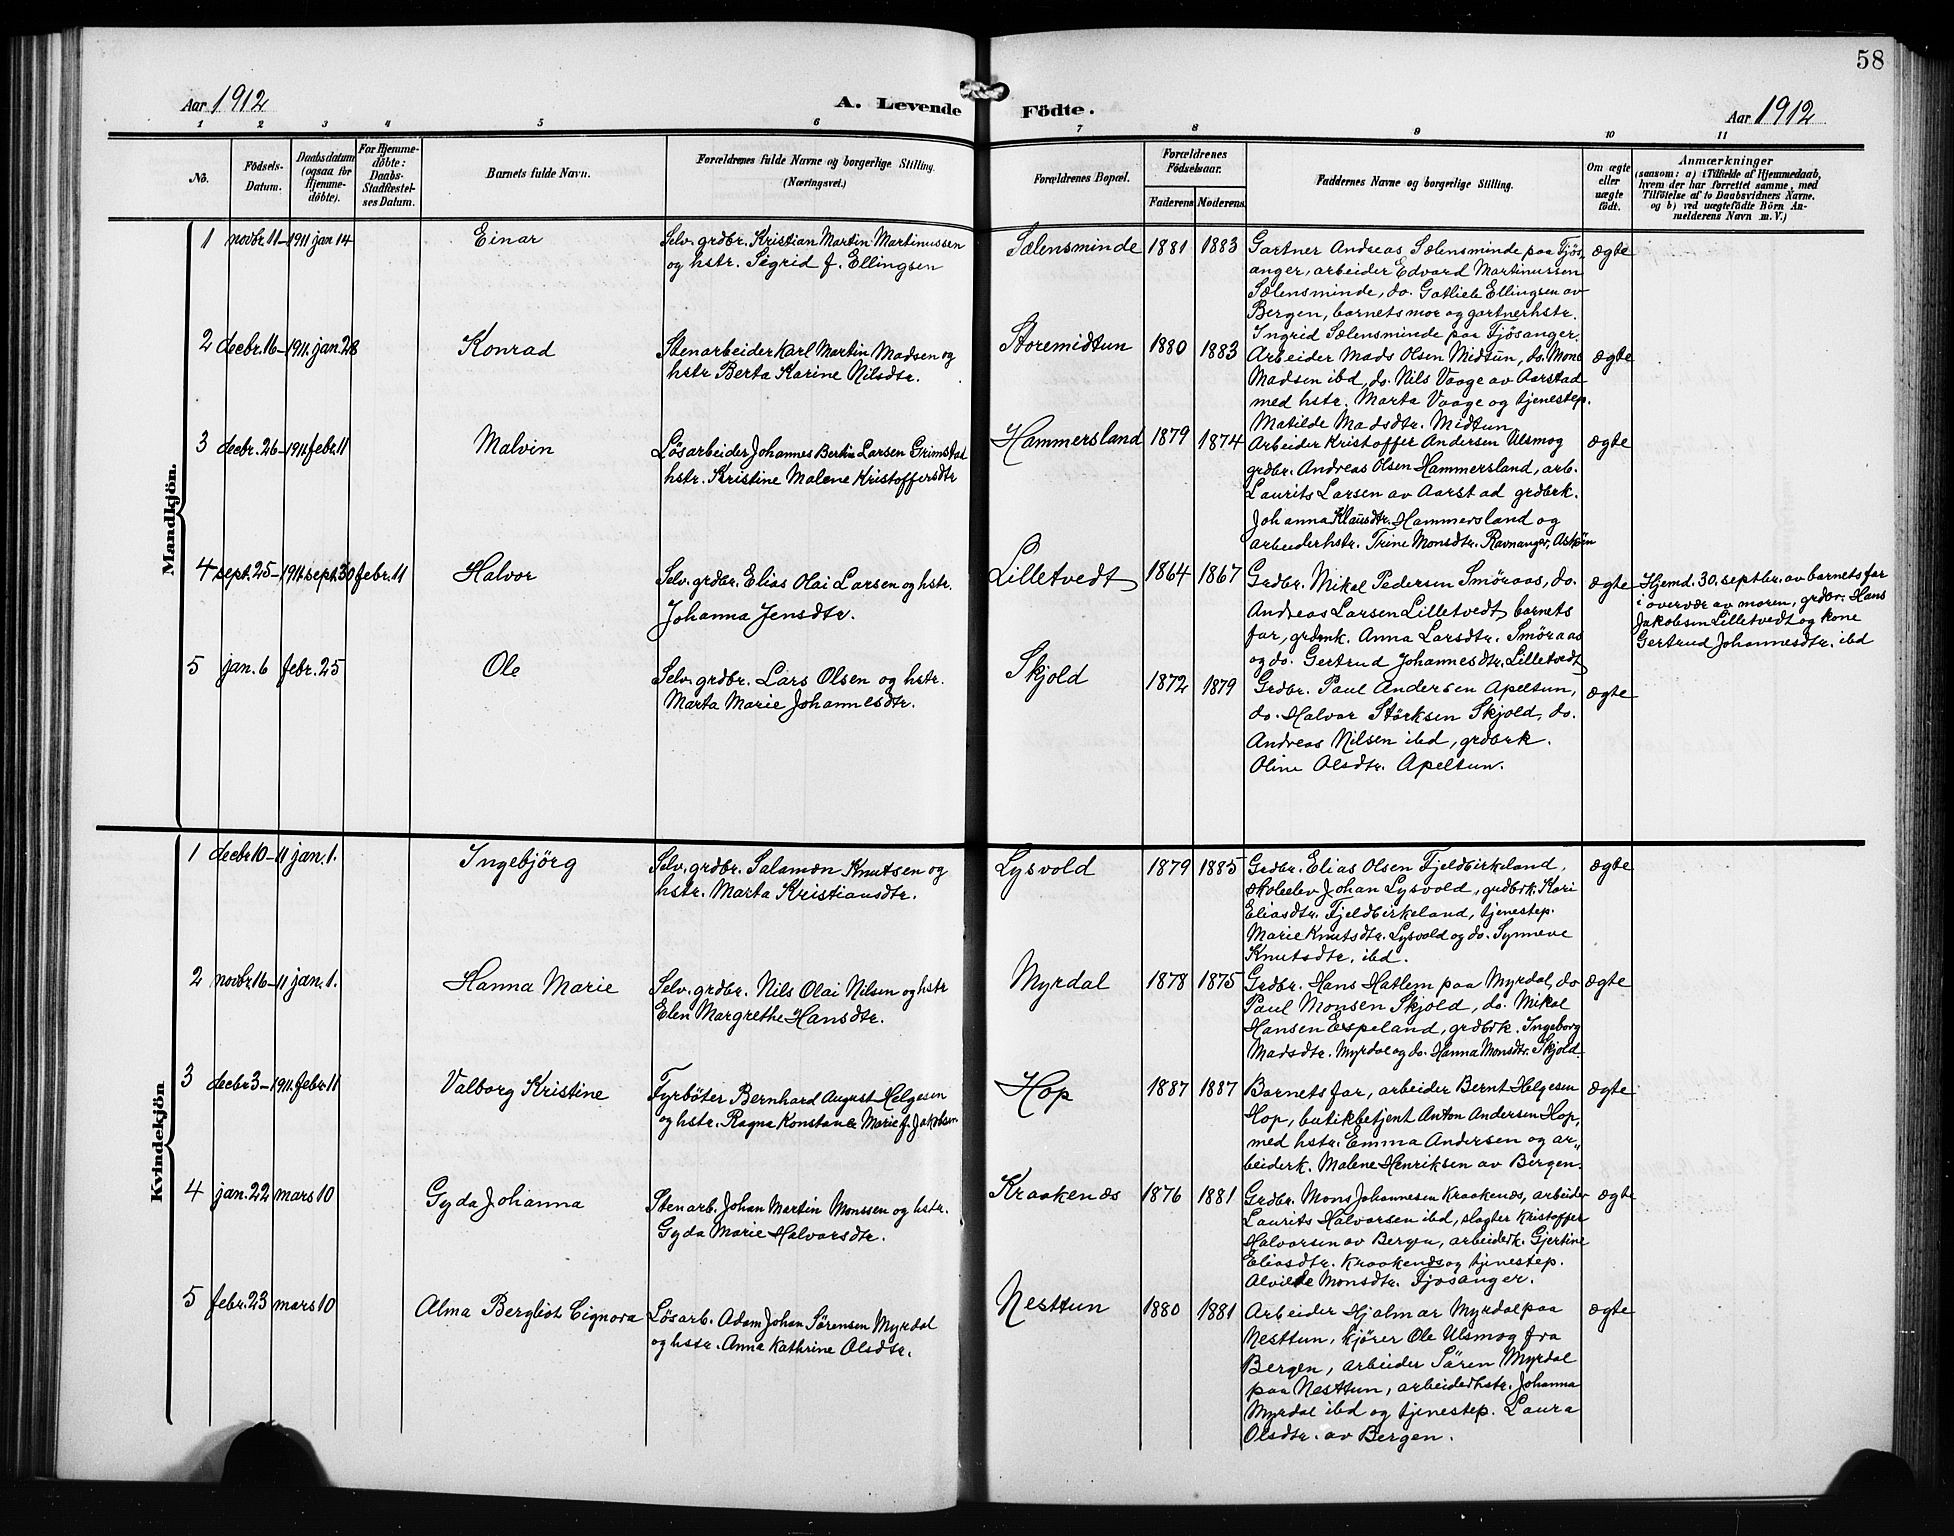 58
Aar 1912
A. Levende Födte.
Aar 1912
1 2 3 4 5 6 7 8 9 10 11
No.
Födsels-
Datum.
Daabsdatum
(ogsaa for
Hjemme-
döbte).
For Hjemme-
döbte:
Daabs-
Stadfæstel-
ses Datum.
Barnets fulde Navn.
Forældrenes fulde Navne og borgerlige Stilling.
(Næringsvei.)
Forældrenes Bopæl.
Forældrenes
Födselsaar.
Faderens
Moderens
Faddernes Navne og borgerlige Stilling.
Om ægte
eller
uægte
födt.
Anmærkninger
(saasom: a) i Tilfælde af Hjemmedaab,
hvem der har forrettet samme, med
Tilföielse af to Daabsvidners Navne.
og b) ved uægtefödte Börn An-
melderens Navn m. V.)
Mandkjön.
1 novbr. 11-1911 jan 14 Einar
Selv. grdbr. Kristian Martin Martinussen
og hstr. Sigrid f. Ellingsen
Sælensminde 1881 1883
Gartner Andreas Sælensminde paa Fjös-
anger, arbeider Edvard Martinussen
Sælensminde, do. Gotlieb Ellingsen av
Bergen, barnets mor og gartnerhstr.
Ingrid Sælensminde paa Fjösanger.
ægte
2 decbr. 16-1911. jan. 28 Konrad
Stenarbeider Karl Martin Madsen og
hstr Berta Karine Nilsdtr.
Storemidtun 1880 1883
Arbeider Mads Olsen Midtun, do. Mons
Madsen ibd, do. Nils Vaage av Aarstad
med hstr. Marta Vaage og tjenestep.
Matilde Madsdtr. Midtun
ægte
3 decbr. 26-1911 febr. 11 Malvin
Løsarbeider Johannes Bertin Larsen Grimstad
hstr. Kristine Malene Kristoffersdtr
Hammersland 1879 1874
Arbeider Kristoffer Andersen Ulsmog
grdbr. Andreas Olsen Hammersland, arb.
Laurits Larsen av Aarstad grdbrk.
Johanna Klausdtr. Hammersland og
arbeiderhstr. Trine Monsdtr. Ravnanger, Askøen
ægte
4 sept. 25-1911 sept. 30 febr. 11 Halvor
Selv. grdbr. Elias Olai Larsen og hstr.
Johanna Jensdtr.
Lilletvedt 1864 1867
Grdbr. Mikal Pedersen Smöraas, do.
Andreas Larsen Lilletvedt, barnets
far, grdbrk. Anna Larsdtr. Smöraas
og do. Gertrud Johannesdtr. Lilletvedt
ægte
Hjemd. 30. septbr. av barnets far
i overvær av moren, grdbr. Hans
Jakobsen Lilletvedt og kone
Gertrud Johannesdtr. ibd
5 jan. 6 febr. 25 Ole
Selv. grdbr. Lars Olsen og hstr.
Marta Marie Johannesdtr.
Skjold 1872 1879
Grdbr. Paul Andersen Apeltun,
do. Halvor Störksen Skjold, do.
Andreas Nilsen ibd, grdbrk.
Oline Olsdtr. Apeltun.
ægte
Kvindekjön
1 decbr 10-11 jan. 1. Ingebjörg
Selv. grdbr. Salamon Knutsen og
hstr. Marta Kristiansdtr.
Lysvold 1879 1885
Grdbr. Elias Olsen Fjeldbirkeland,
skoleelev Johan Lysvold, grdbrk. Kari
Eliasdtr. Fjeldbirkeland, tjenestep.
Marie Knutsdtr. Lysvold og do. Synneve
Knutsdtr. ibd.
ægte
2 novbr. 16-11 jan. 1. Hanna Marie
Selv. grdbr. Nils Olai Nilsen og hstr
Elen Margrethe Hansdtr.
Myrdal 1878 1875
Grdbr. Hans Hatlem paa Myrdal, do
Paul Monsen Skjold, do. Mikal
Hansen Espeland, grdbrk. Ingeborg
Madsdtr. Myrdal og do. Hanna Monsdtr. Skjold
ægte
3 decbr. 3-1911. febr. 11 Valborg Kristine
Fyrbøter Bernhard August Helgesen
og hstr. Ragna Konstance Marie f. Jakobsen
Hop 1887 1887
Barnets far, arbeider Bernt Helgesen
Hop, butikbetjent Anton Andersen Hop,
med hstr. Emma Andersen og ar-
beiderk. Malene Henriksen av Bergen.
ægte
4 jan. 22 mars 10 Gyda Johanna
Stenarb. Johan Martin Monssen og hstr.
Gyda Marie Halvorsdtr.
Kraakenæs 1876 1881
Grdbr. Mons Johannesen Kraakenæs, arbeider
Laurits Halvorsen ibd, slagter Kristoffer
Halvorsen av Bergen, arbeiderk. Gjertine
Eliasdtr. Kraakenæs og tjenestep.
Alvilde Monsdtr. Fjosanger.
ægte
5 febr. 23 mars 10 Alma Bergliot Signora
Løsarb. Adam Johan Sørensen Myrdal
og hstr. Anna Kathrine Olsdtr.
Nesttun 1880 1881
Arbeider Hjalmar Myrdal paa
Nesttun, kjører Ole Ulsmog fra
Bergen, arbeider Sören Myrdal
paa Nesttun, arbeiderhstr. Johanna
Myrdal ibd og tjenestep. Laura
Olsdtr. av Bergen.
ægte